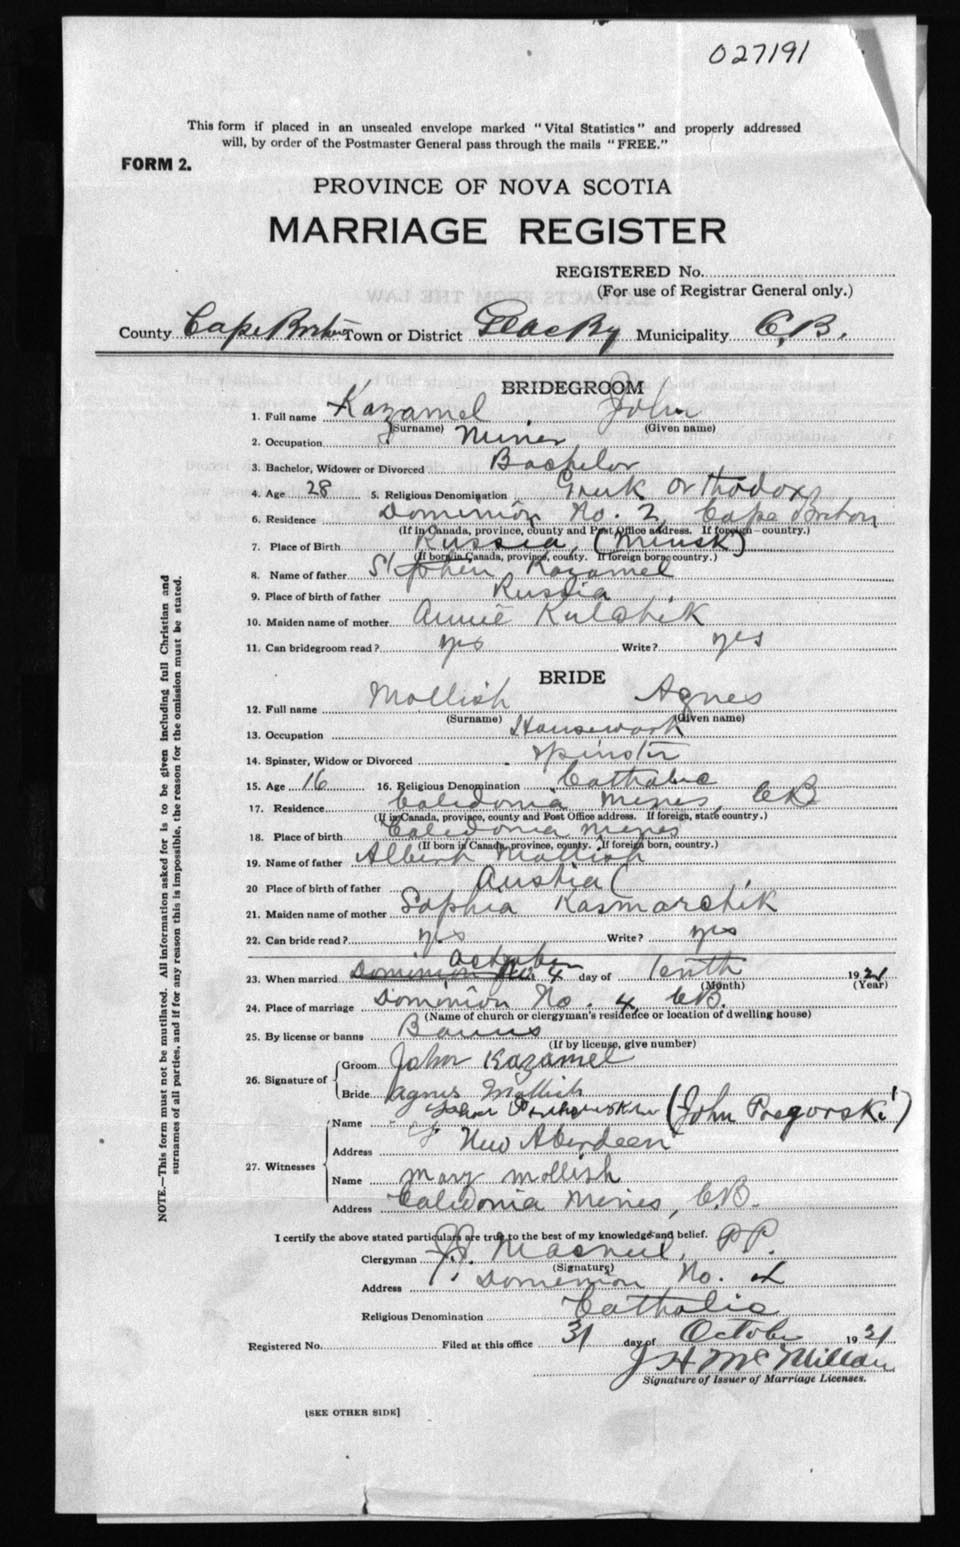 027191
This form if placed in an unsealed envelope marked "Vital Statistics" and properly addressed
will, by order of the Postmaster General pass through the mails "FREE."
FORM 2.
PROVINCE OF NOVA SCOTIA
MARRIAGE REGISTER
REGISTERED No.
(For use of Registrar General only.)
County Cape Breton Town or District Glace By Municipality C.B.
BRIDEGROOM
1. Full name Kazamel John
(Surname) (Given name)
2. Occupation Miner
3. Bachelor, Widower or Divorced Bachelor
4. Age 28 5. Religious Denomination Greek Orthodox
6. Residence Dominion No. 2, Cape Breton
(If in Canada, province, county and Post Office address. If foreign country.)
7. Place of Birth Russia, (Minsk)
(If born in Canada, province, county. If foreign born country.)
8. Name of father Stephen Kazamel
9. Place of birth of father Russia
10. Maiden name of mother Annie Kulchik
11. Can bridegroom read? yes Write? yes
BRIDE
12. Full name Mollish Agnes
(Surname) (Given name)
13. Occupation Housework
14. Spinster, Widow or Divorced spinster
15. Age 16 16. Religious Denomination Catholic
17. Residence Caledonia Mines, CB
(If in Canada, province, county and Post Office address. If foreign, state country.)
18. Place of birth Caledonia Mines
(If born in Canada, province, county. If foreign born, country.)
19. Name of father Albert Mollish
20 Place of birth of father Austria
21. Maiden name of mother Sophia Kasmarchik
22. Can bride read? yes Write? yes
October
23. When married Dominion No. 4 day of tenth 1921
(Month) (Year)
24. Place of marriage Dominion No. 4, CB.
(Name of church or clergyman's residence or location of dwelling house)
25. By license or banns Banns
(If by license, give number)
26. Signature of Groom John Kazamel
Bride Agnes Mollish
27. Witnesses Name (John Pregorski)
Address New Aberdeen
Name Mary Mollish
Address Caledonia Mines, C.B.
I certify the above stated particulars are true to the best of my knowledge and belief.
Clergyman PP.
(Signature)
Address Dominion No.
Religious Denomination Catholic
Registered No. Filed at this office 31 day of October 1921
J H McMillan
Signature of Issuer of Marriage Licenses.
[SEE OTHER SIDE]
NOTE.—This form must not be mutilated. All information asked for is to be given including full Christian and
surnames of all parties, and if for any reason this is impossible, the reason for the omission must be stated.